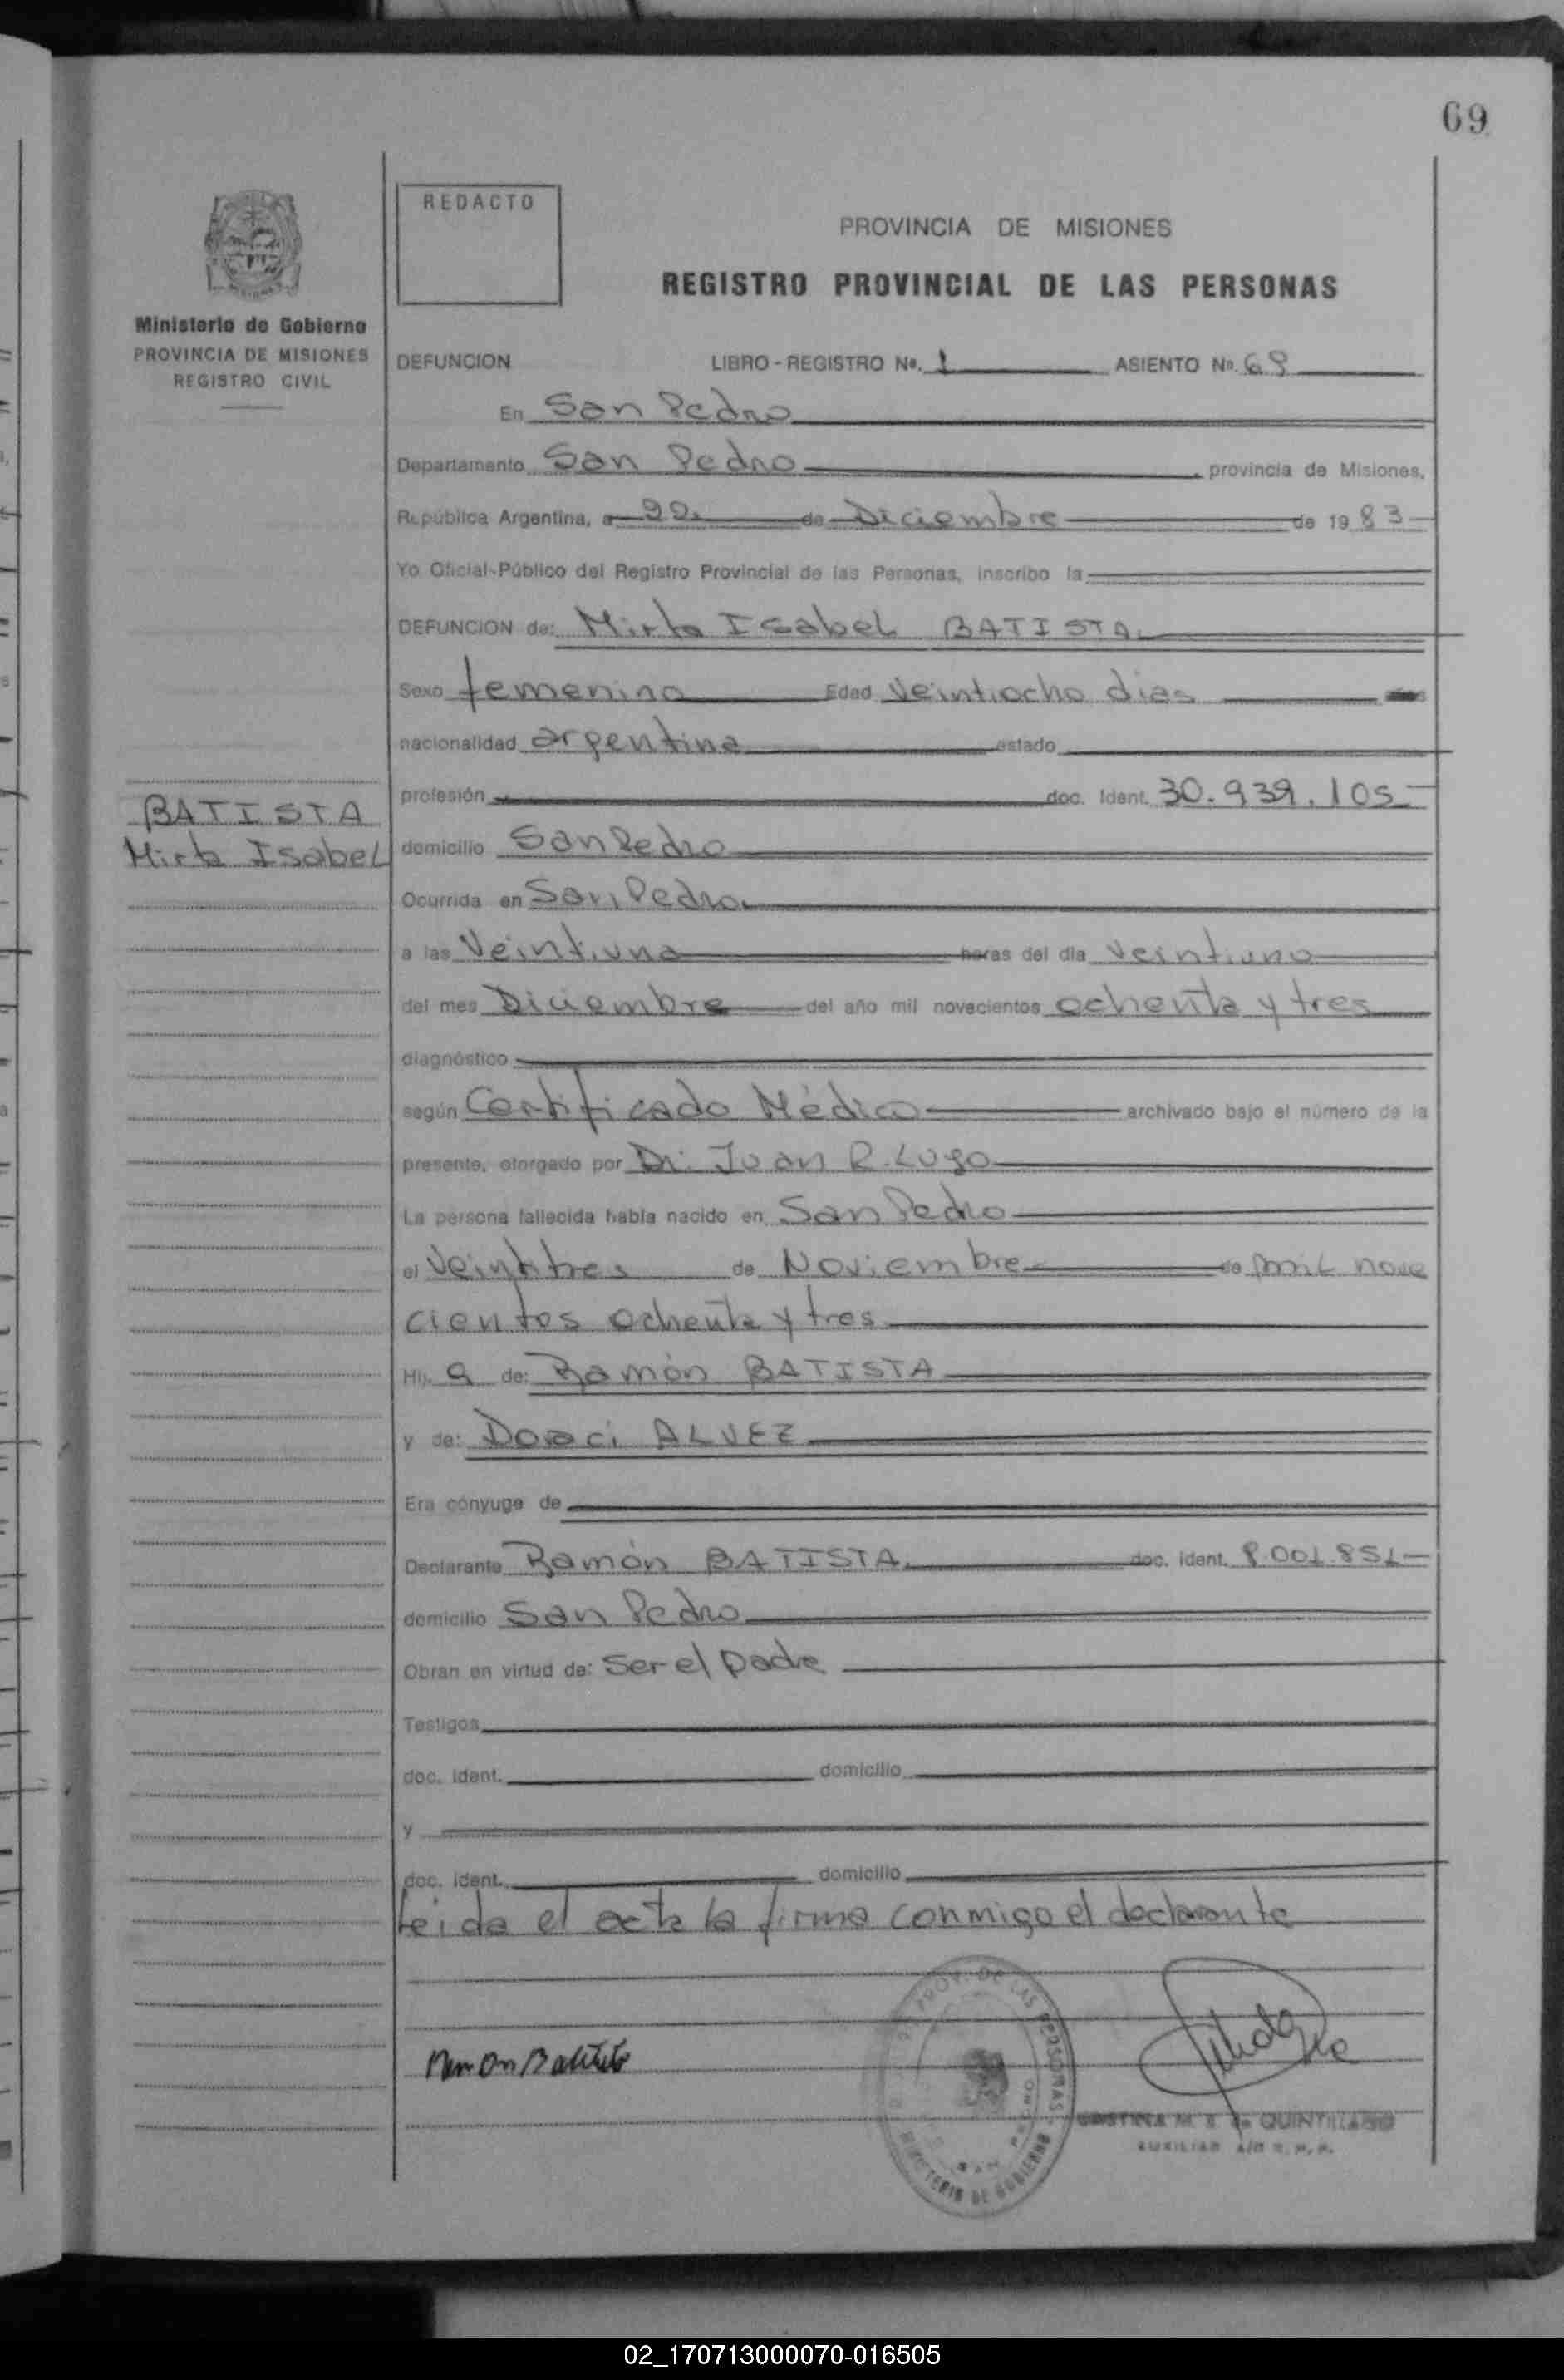 69
REDACTO
PROVINCIA DE MISIONES
REGISTRO PROVINCIAL DE LAS PERSONAS
Ministerio de Gobierno
PROVINCIA DE MISIONES
REGISTRO CIVIL
DEFUNCION LIBRO - REGISTRO Nº. 1 ASIENTO Nº. 69
En San Pedro
Departamento San Pedro , provincia de Misiones,
República Argentina, a 22 de Diciembre de 1983
Yo Oficial Público del Registro Provincial de las Personas, inscribo la
DEFUNCION de: Mirta Isabel BATISTA
Sexo femenino Edad Veintiocho dias
nacionalidad argentina estado
profesión doc. Ident. 30.939.105
BATISTA
Mirta Isabel
domicilio San Pedro
Ocurrida en San Pedro
a las Veintiuna horas del día veintiuno
del mes Diciembre del año mil novecientos ochenta y tres
diagnóstico
según Certificado Médico archivado bajo el número de la
presente, otorgado por Dr. Juan R. Lugo
La persona fallecida había nacido en San Pedro
el Veintitres de Noviembre de mil nove
cientos ochenta y tres
Hij a de: Ramón BATISTA
y de: Doraci ALVEZ
Era cónyuge de
Declarante Ramón BATISTA doc. ident. 8.001.851
domicilio San Pedro
Obran en virtud de: Ser el padre
Testigos
doc. ident. domicilio
y
doc. ident. domicilio
Leida el acta la firma conmigo el declarante
PROV. DE LAS PERSONAS
MINISTERIO DE GOBIERNO
SAN PEDRO
M. S. de QUINTILIANO
AUXILIAR
02_170713000070-016505